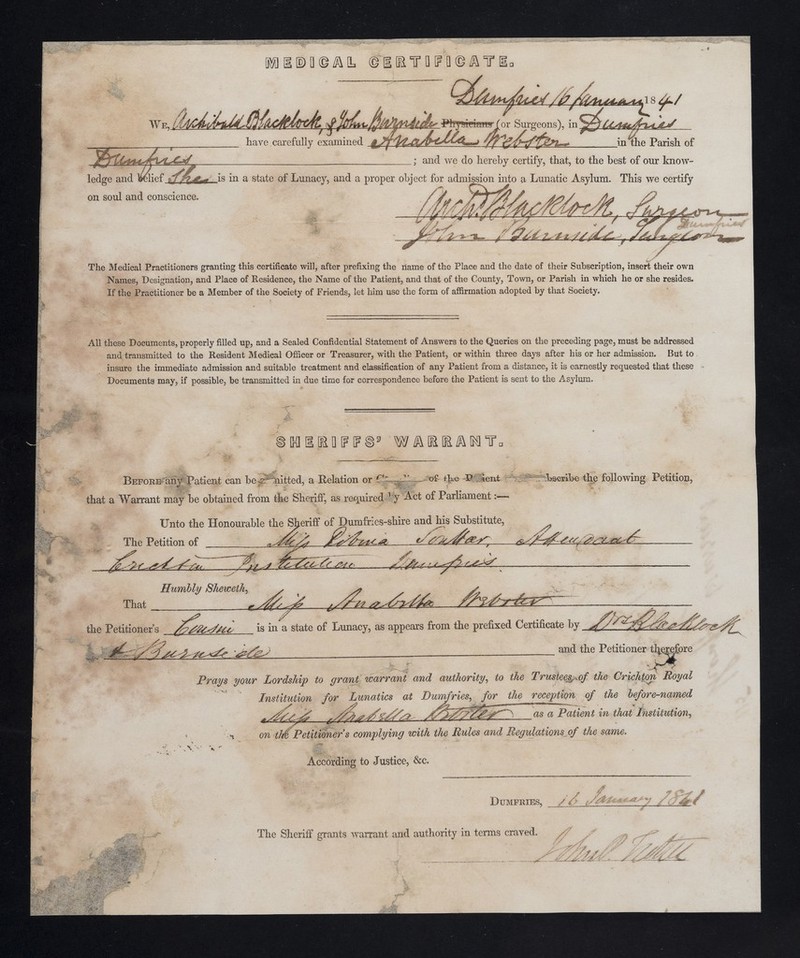 MEDICAL CERTIFICATE.
Dumfries 16 January 1841
WE, Archibald Blacklock, & John Burnside Physicians (or Surgeons), in Dumfries
have carefully examined Anabella Webster in the Parish of
Dumfries ; and we do hereby certify, that, to the best of our know-
ledge and belief She is in a state of Lunacy, and a proper object for admission into a Lunatic Asylum. This we certify
on soul and conscience.
Archd Blacklock, Surgeon
Dumfries
John Burnside, Surgeon
The Medical Practitioners granting this certificate will, after prefixing the name of the Place and the date of their Subscription, insert their own
Names, Designation, and Place of Residence, the Name of the Patient, and that of the County, Town, or Parish in which he or she resides.
If the Practitioner be a Member of the Society of Friends, let him use the form of affirmation adopted by that Society.
All these Documents, properly filled up, and a Sealed Confidential Statement of Answers to the Queries on the preceding page, must be addressed
and transmitted to the Resident Medical Officer or Treasurer, with the Patient, or within three days after his or her admission. But to
insure the immediate admission and suitable treatment and classification of any Patient from a distance, it is earnestly requested that these
Documents may, if possible, be transmitted in due time for correspondence before the Patient is sent to the Asylum.
SHERIFFS' WARRANT.
BEFORE any Patient can be a mitted, a Relation or of the P ient bscribe the following Petition,
that a Warrant may be obtained from the Sheriff, as required by Act of Parliament:—
Unto the Honourable the Sheriff of Dumfries-shire and his Substitute,
The Petition of Miss Attendant
Crichton Institution Dumfries
Humbly Sheweth,
That Miss Anabella Webster
the Petitioner's Cousin is in a state of Lunacy, as appears from the prefixed Certificate by Drs Blacklock
& Burnside and the Petitioner therefore
Prays your Lordship to grant warrant and authority, to the Trustees of the Crichton Royal
Institution for Lunatics at Dumfries, for the reception of the before-named
Miss Anabella Webster as a Patient in that Institution,
on the Petitioner's complying with the Rules and Regulations of the same.
According to Justice, &c.
DUMFRIES, 16 January 1841
The Sheriff grants warrant and authority in terms craved.